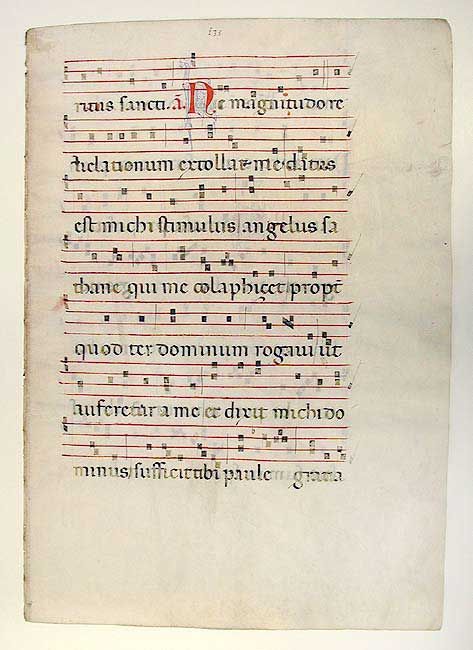 135
ritus sancti. a. Ne magnitudo re
uelationum extollat me datus
est michi stimulus angelus sa
thane qui me colaphiçet propt
quod ter dominum rogaui ut
auferetur a me et dixit michi do
minus sufficit tibi paule gratia